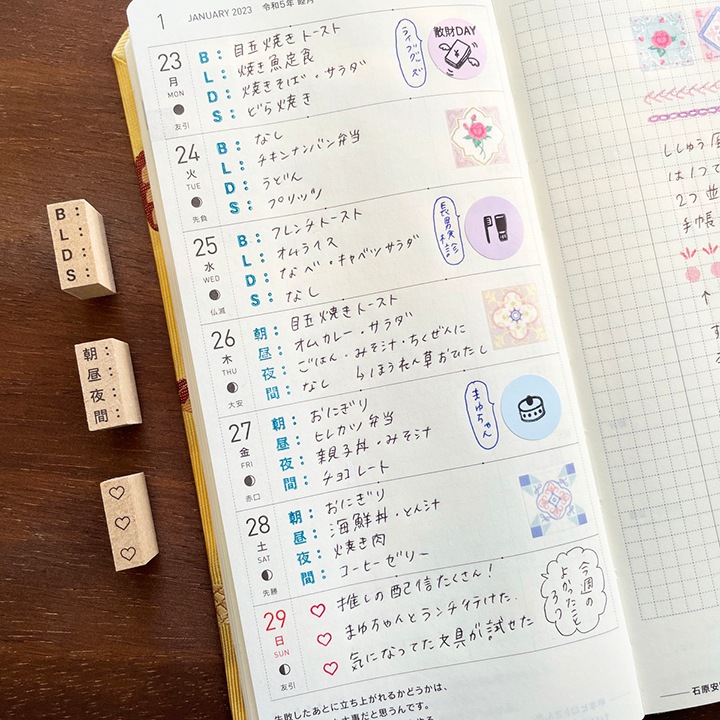 1 JANUARY 2023 令和5年 睦月
23 月 MON 友引
B： 目玉焼きトースト
L： 焼き魚定食
D： 焼きそば・サラダ
S： どら焼き
ライブグッズ
散財DAY
24 火 TUE 先負
B： なし
L： チキンナンバン弁当
D： うどん
S： プリッツ
25 水 WED 仏滅
B： フレンチトースト
L： オムライス
D： なべ・キャベツサラダ
S： なし
長男検診
26 木 THU 大安
朝： 目玉焼きトースト
昼： オムカレー・サラダ
夜： ごはん・みそ汁・ちくぜんに
間： なし ↳ほうれん草おひたし
27 金 FRI 赤口
朝： おにぎり
昼： ヒレカツ弁当
夜： 親子丼・みそ汁
間： チョコレート
まゆちゃん
28 土 SAT 先勝
朝： おにぎり
昼： 海鮮丼・とん汁
夜： 焼き肉
間： コーヒーゼリー
29 日 SUN 友引
♡ 推しの配信たくさん！
♡ まゆちゃんとランチ行けた.
♡ 気になってた文具が試せた
今週の
よかったこと
3つ
失敗したあとに立ち上がれるかどうかは、
大事だと思うんです。
B：
L：
D：
S：
朝：
昼：
夜：
間：
♡
♡
♡
ししゅう
は1つ
2つ並
手帳
↑
石原安